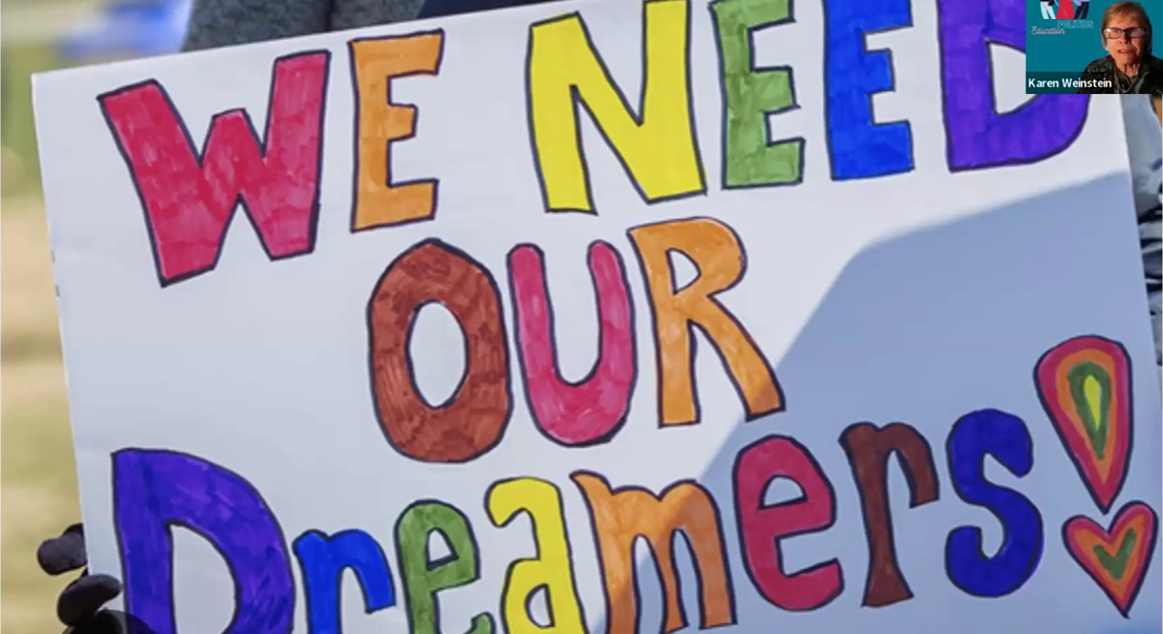 WE NEED
OUR
Dreamers!
POLITICS
Education
Karen Weinstein